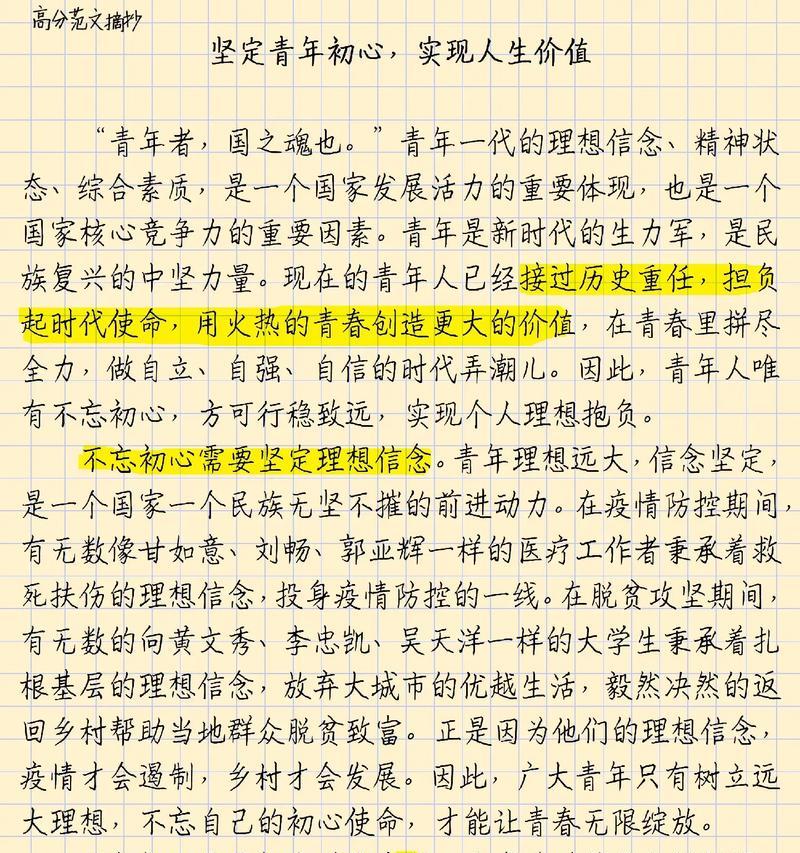 高分范文摘抄
坚定青年初心，实现人生价值
“青年者，国之魂也。”青年一代的理想信念、精神状
态、综合素质，是一个国家发展活力的重要体现，也是一个
国家核心竞争力的重要因素。青年是新时代的生力军，是民
族复兴的中坚力量。现在的青年人已经接过历史重任，担负
起时代使命，用火热的青春创造更大的价值，在青春里拼尽
全力，做自立、自强、自信的时代弄潮儿。因此，青年人唯
有不忘初心，方可行稳致远，实现个人理想抱负。
不忘初心需要坚定理想信念。青年理想远大，信念坚定，
是一个国家一个民族无坚不摧的前进动力。在疫情防控期间，
有无数像甘如意、刘畅、郭亚辉一样的医疗工作者秉承着救
死扶伤的理想信念，投身疫情防控的一线。在脱贫攻坚期间，
有无数的向黄文秀、李忠凯、吴天洋一样的大学生秉承着扎
根基层的理想信念，放弃大城市的优越生活，毅然决然的返
回乡村帮助当地群众脱贫致富。正是因为他们的理想信念，
疫情才会遏制，乡村才会发展。因此，广大青年只有树立远
大理想，不忘自己的初心使命，才能让青春无限绽放。